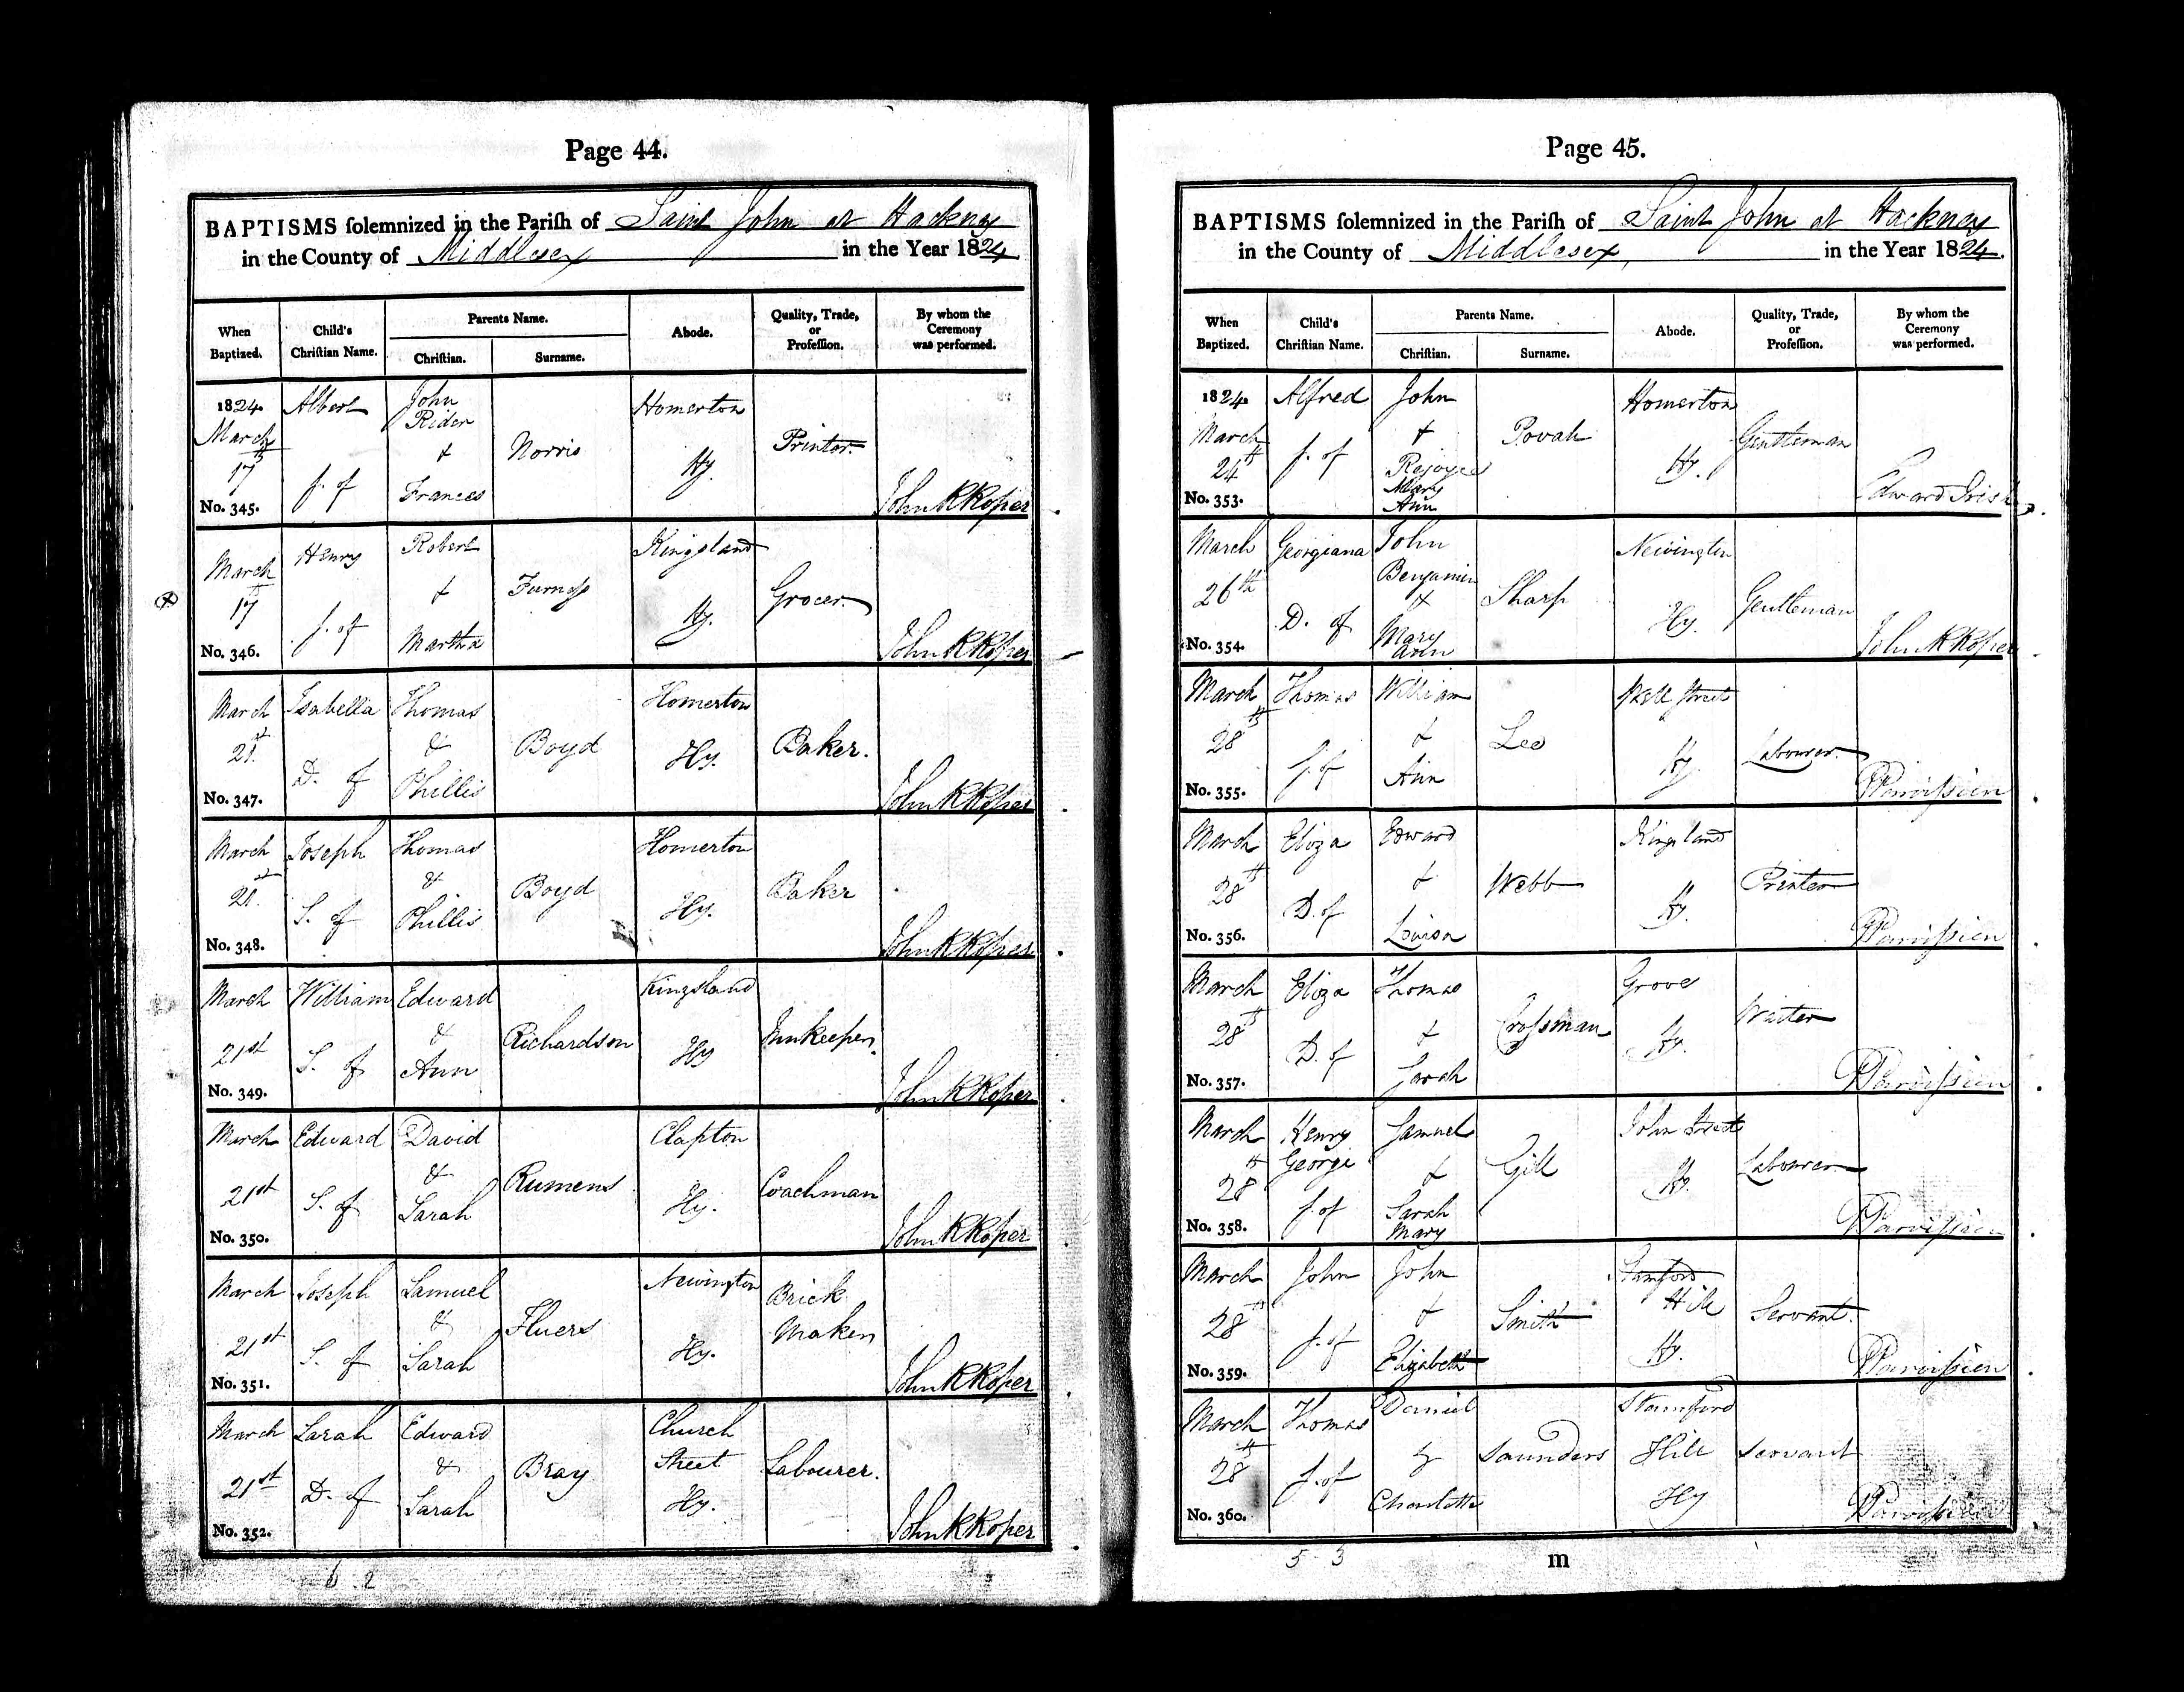 Page 44.
BAPTISMS ſolemnized in the Pariſh of Saint John at Hackney
in the County of Middlesex in the Year 1824
When Baptized. Child's Chriſtian Name. Parents Name. Chriſtian. Surname. Abode. Quality, Trade, or Profeſſion. By whom the Ceremony was performed.
1824. March 17th No. 345. Albert S. of John Rider & Frances Norris Homerton Hy. Printer. John R Roper
March 17th No. 346. Henry S. of Robert & Martha Furneſs Kingsland Hy. Grocer. John R Roper
March 21st No. 347. Isabella D. of Thomas & Phillis Boyd Homerton Hy. Baker. John R Roper
March 21st No. 348. Joseph S. of Thomas & Phillis Boyd Homerton Hy. Baker John R Roper
March 21st No. 349. William S. of Edward & Ann Richardson Kingsland Hy Innkeeper. John R Roper
March 21st No. 350. Edward S. of David & Sarah Rumens Clapton Hy. Coachman John R Roper
March 21st No. 351. Joseph S. of Samuel & Sarah Fluers Newington Hy. Brick Maker John R Roper
March 21st No. 352. Sarah D. of Edward & Sarah Bray Church Street Hy. Labourer. John R Roper
Page 45.
BAPTISMS ſolemnized in the Pariſh of Saint John at Hackney
in the County of Middlesex, in the Year 1824.
When Baptized. Child's Chriſtian Name. Parents Name. Chriſtian. Surname. Abode. Quality, Trade, or Profeſſion. By whom the Ceremony was performed.
1824 March 24th No. 353. Alfred S. of John & Rejoyce Mary Ann Povah Homerton Hy. Gentleman Edward Irish
March 26th No. 354. Georgiana D. of John Benjamin & Mary Ann Sharp Newington Hy. Gentleman John R Roper
March 28th No. 355. Thomas S. of William & Ann Lee Well Street Hy. Labourer. P Parviſsien
March 28th No. 356. Eliza D. of Edward & Louisa Webb Kingsland Hy. Printer P Parviſsien
March 28th No. 357. Eliza D. of Thomas & Sarah Croſsman Grove Hy. Waiter P Parviſsien
March 28th No. 358. Henry George S. of Samuel & Sarah Mary Gill John Street Hy. Labourer P Parviſsien
March 28th No. 359. John S. of John & Elizabeth Smith Stamford Hill Hy. Servant. P Parviſsien
March 28th No. 360. Thomas S. of Daniel & Charlotte Saunders Stamford Hill Hy Servant P Parviſsien
6 2
5 3
m